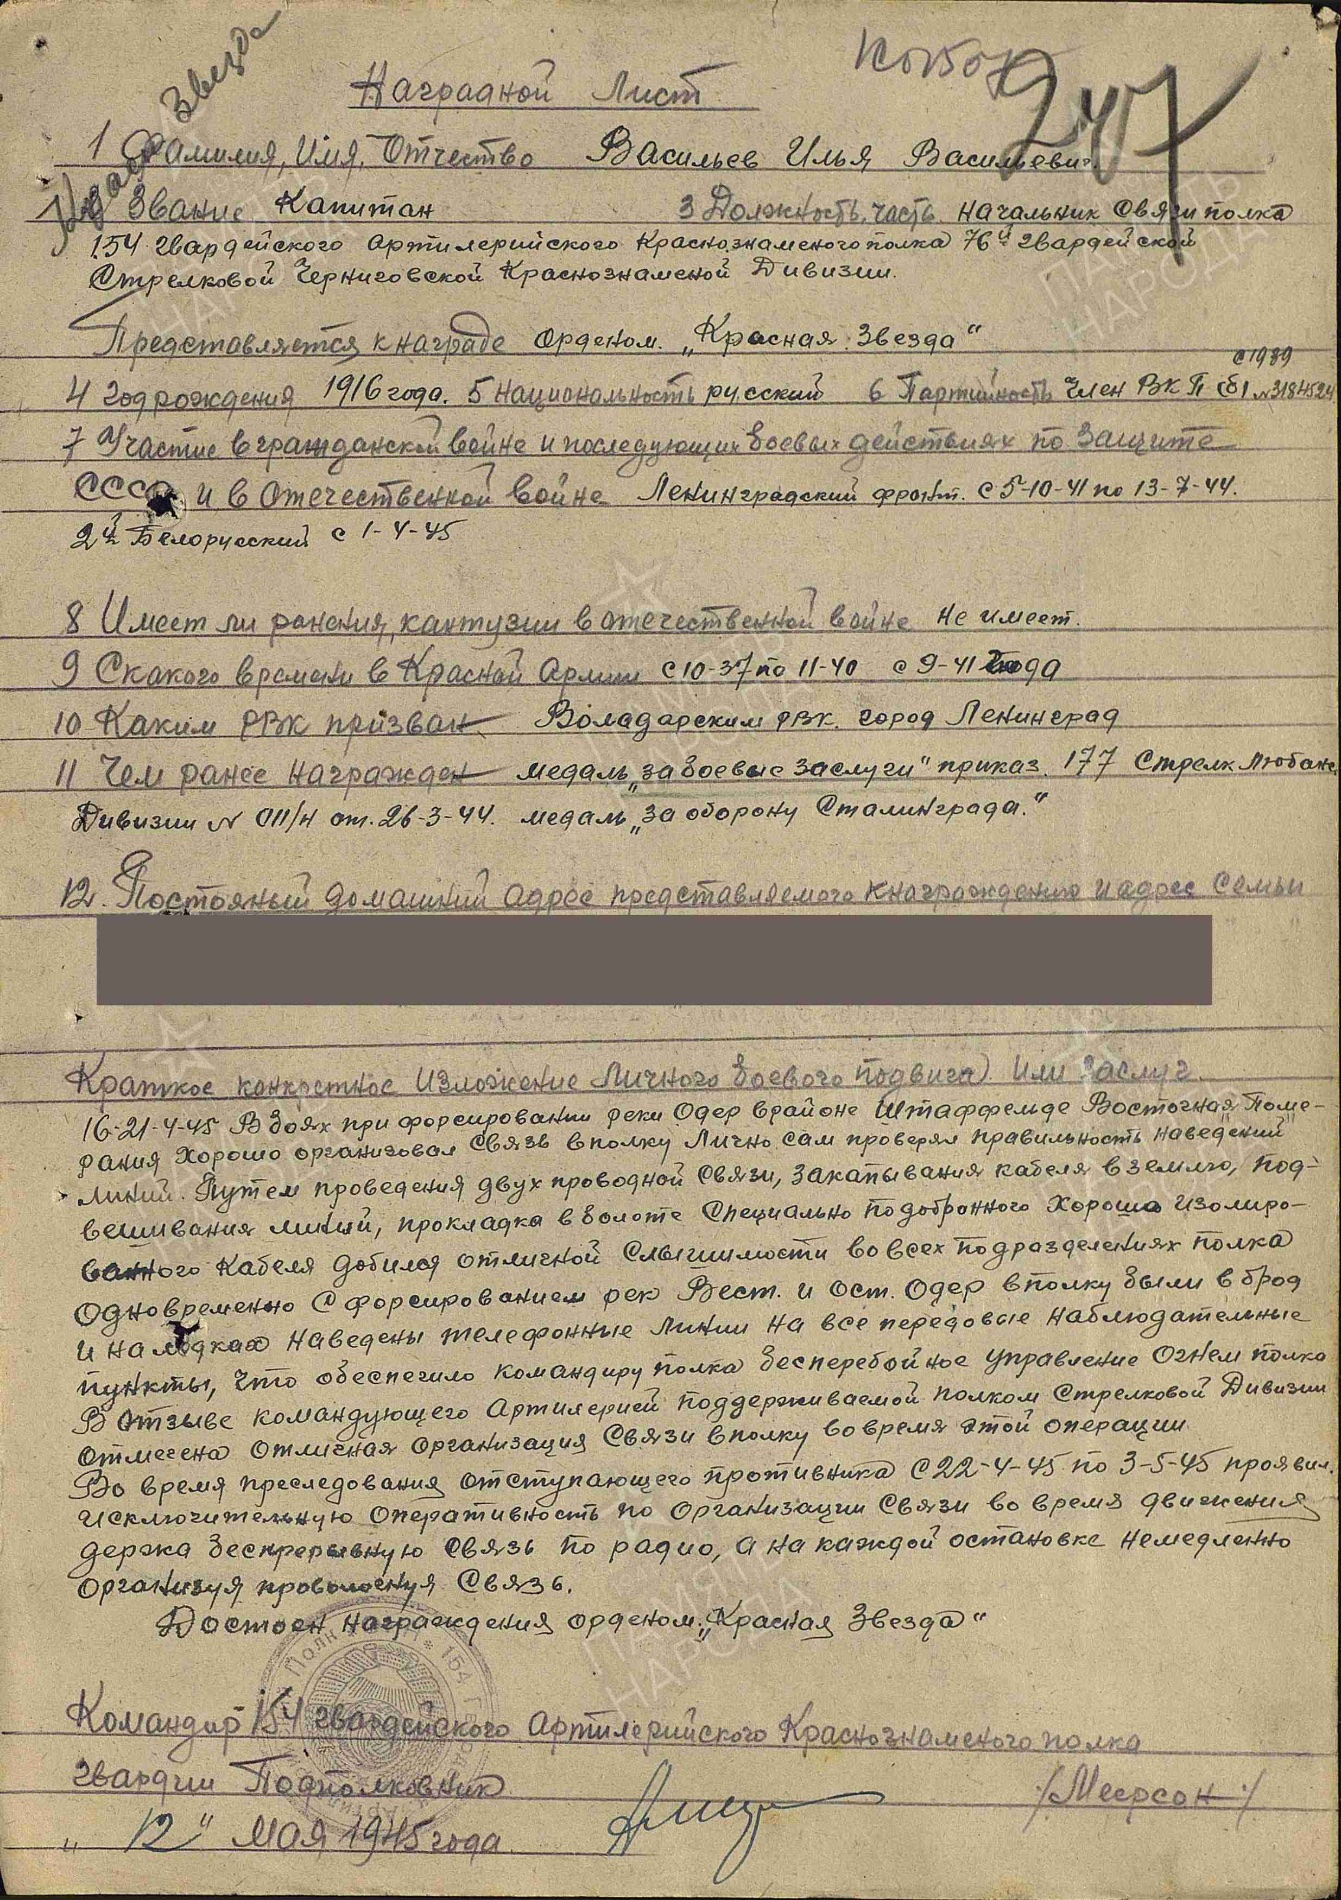 Красная Звезда
247
Наградной Лист
1 Фамилия, Имя, Отчество Васильев Илья Васильевич.
2 Звание Капитан 3 Должность, часть начальник связи полка
154 гвардейского артилерийского Краснознаменого полка 76й гвардейской
Стрелковой Черниговской Краснознаменой Дивизии.
Представляется к награде орденом „Красная Звезда“
с 1989
4 год рождения 1916 года. 5 национальность русский 6 Партийность Член ВКП(б) №3184524
7 Участие в гражданской войне и последующих боевых действиях по защите
СССР и в отечественной войне Ленинградский фронт. с 5-10-41 по 13-7-44.
2й Белорусский с 1-4-45
8 Имеет ли ранения, кантузии в отечественной войне не имеет.
9 С какого времени в Красной Армии с 10-37 по 11-40 с 9-41 года
10 Каким РВК призван Воладарским РВК. город Ленинград
11 Чем ранее награжден медаль „за боевые заслуги“ приказ. 177 Стрелк Любанс.
Дивизии № 011/н от. 26-3-44. медаль „за оборону Сталинграда.“
12. Постояный домашний адрес представляемого к награждению и адрес семьи
Краткое конкретное изложение личного боевого подвига или заслуг
16-21-4-45 В боях при форсировании реки Одер в районе Штаффельде Восточная Поме-
рания хорошо организовал связь в полку Лично сам проверял правильность наведений
линий. Путем проведения двух проводной связи, закапывания кабеля в землю, под-
вешивания линий, прокладка в болоте специально подобранного хорошо изолиро-
ванного кабеля добился отличной слышимости во всех подразделениях полка
Одновременно с форсированием рек Вест. и Ост. Одер в полку были в брод
и на лодках наведены телефонные линии на все передовые наблюдательные
пункты, что обеспечило командиру полка бесперебойное управление огнем полка
В отзыве командующего Артилерией поддерживаемой полком Стрелковой Дивизии
отмечена отличная организация связи в полку во время этой операции.
Во время преследования отступающего противника с 22-4-45 по 3-5-45 проявил
исключительную оперативность по организации связи во время движения
держа беспрерывную связь по радио, а на каждой остановке немедленно
организуя проволочную связь.
Достоен награждения орденом „Красная Звезда“
Командир 154 гвардейского Артилерийского Краснознаменого полка
гвардии Подполковник /Меерсон/
„12“ Мая 1945 года